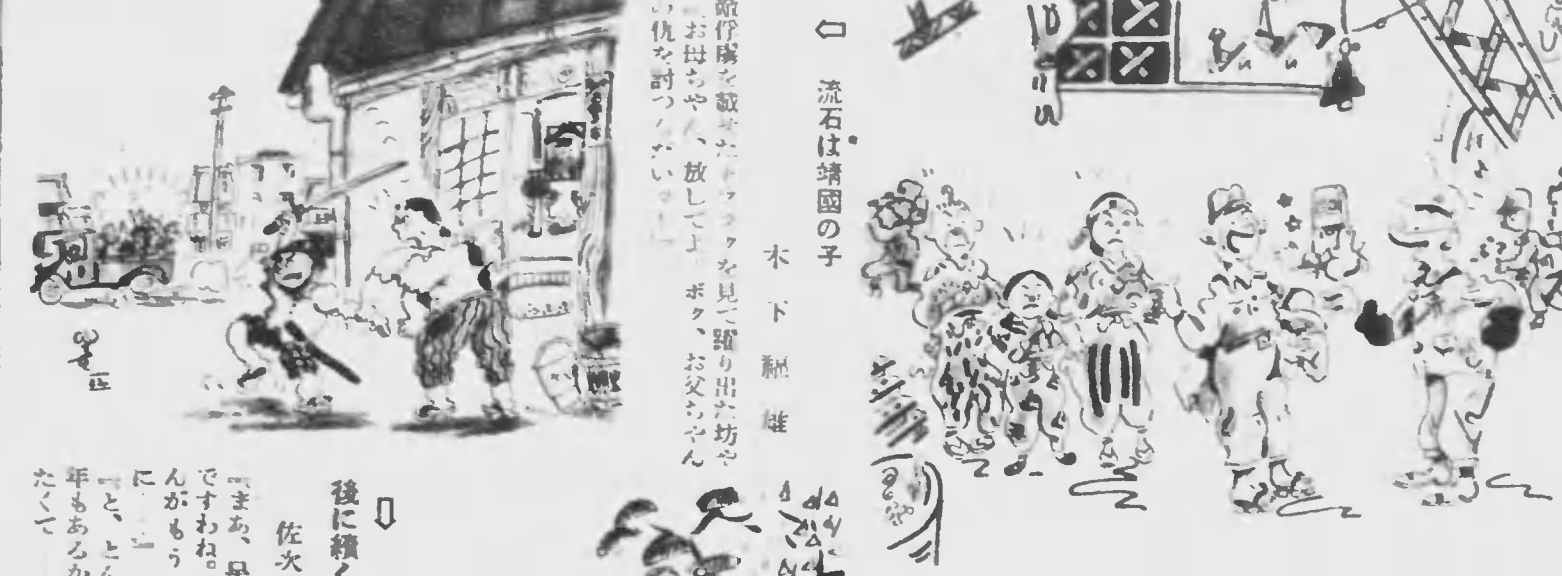 流石は靖國の子
木下
雄
敵俘虜を載せたトラックを見て躍り出た坊や
『お母ちやん、放してよ、ボク、お父ちやん
の仇を討つ
後に續く
佐次
『まあ、
ですわね。
んがもう
に
年もあるか
たくて